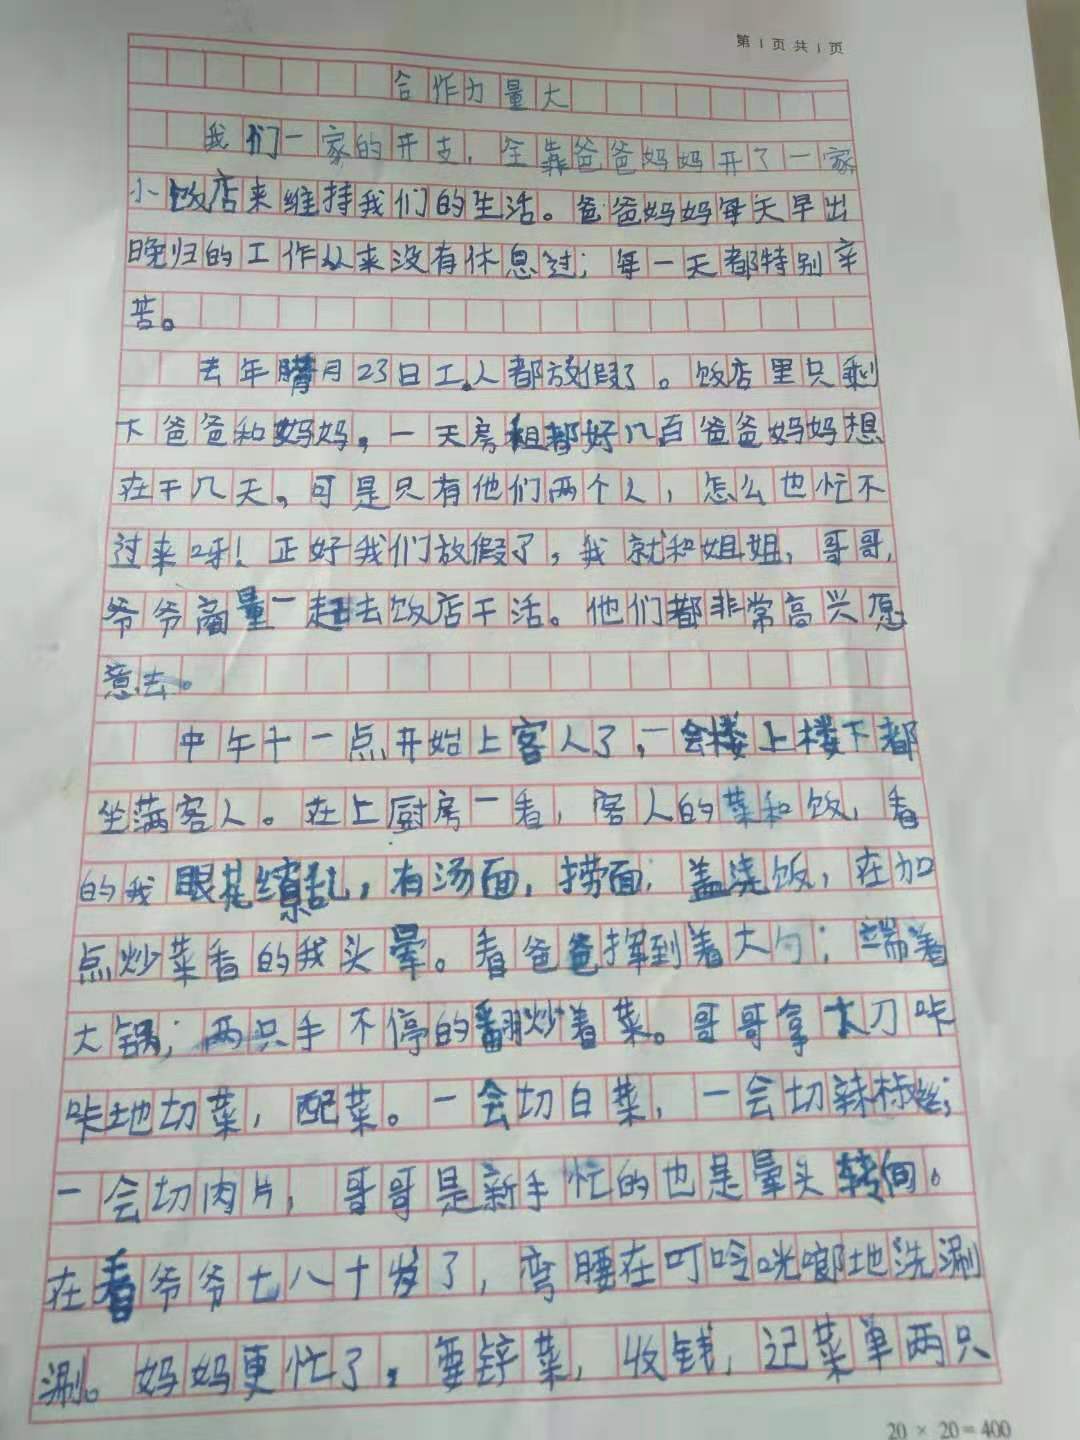 第1页共1页
合作力量大
我们一家的开支，全靠爸爸妈妈开了一家
小饭店来维持我们的生活。爸爸妈妈每天早出
晚归的工作从来没有休息过；每一天都特别辛
苦。
去年腊月23日工人都放假了。饭店里只剩
下爸爸和妈妈，一天房租都好几百爸爸妈妈想
在干几天，可是只有他们两个人，怎么也忙不
过来呀！正好我们放假了，我就和姐姐，哥哥，
爷爷商量一起去饭店干活。他们都非常高兴愿
意去。
中午十一点开始上客人了，一会楼上楼下都
坐满客人。在上厨房一看，客人的菜和饭，看
的我眼花缭乱，有汤面，捞面，盖浇饭，在加
点炒菜看的我头晕。看爸爸挥到着大勺；端着
大锅；两只手不停的翻炒着菜。哥哥拿大刀咔
咔地切菜，配菜。一会切白菜，一会切辣椒丝；
一会切肉片，哥哥是新手忙的也是晕头转向。
在看爷爷七八十岁了，弯腰在叮呤咣啷地洗涮
涮。妈妈更忙了，要锌菜，收钱，记菜单两只
20×20=400